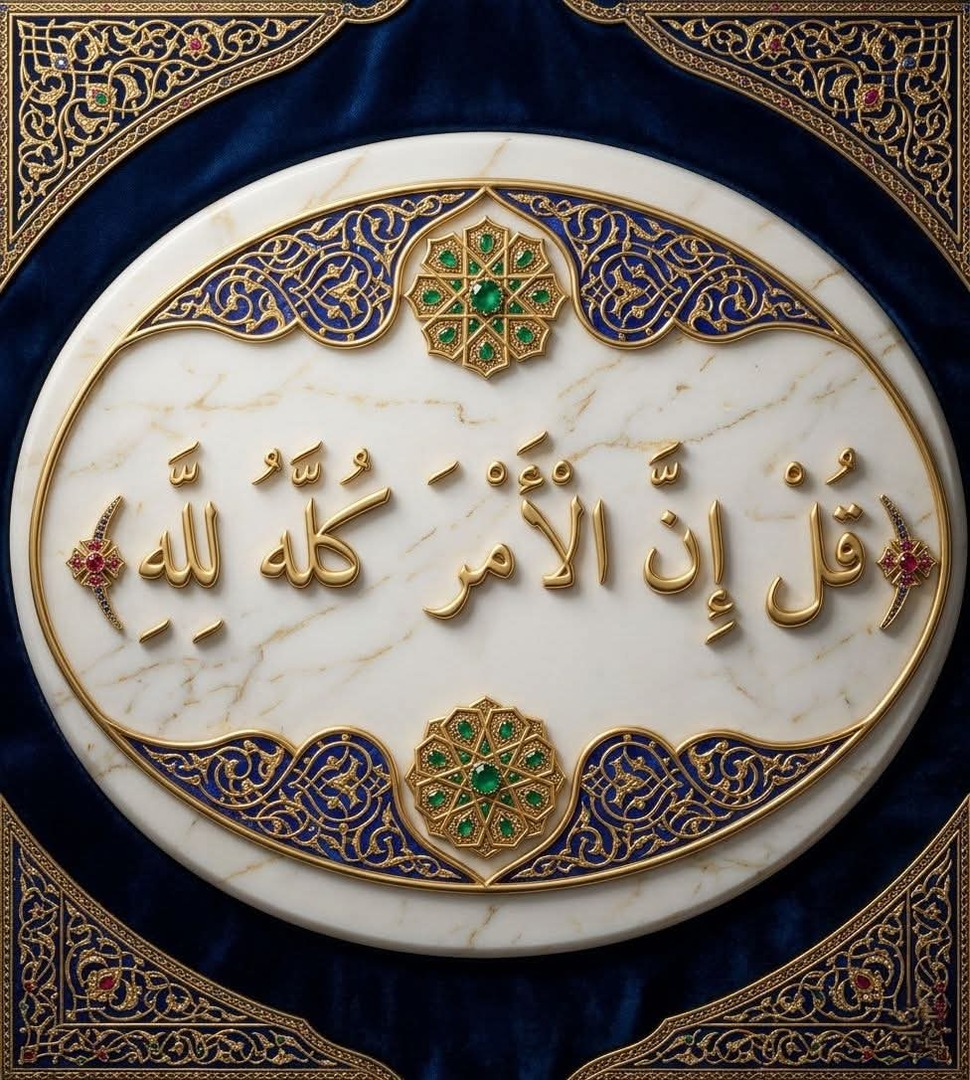 قُلْ إِنَّ الْأَمْرَ كُلَّهُ لِلَّهِ